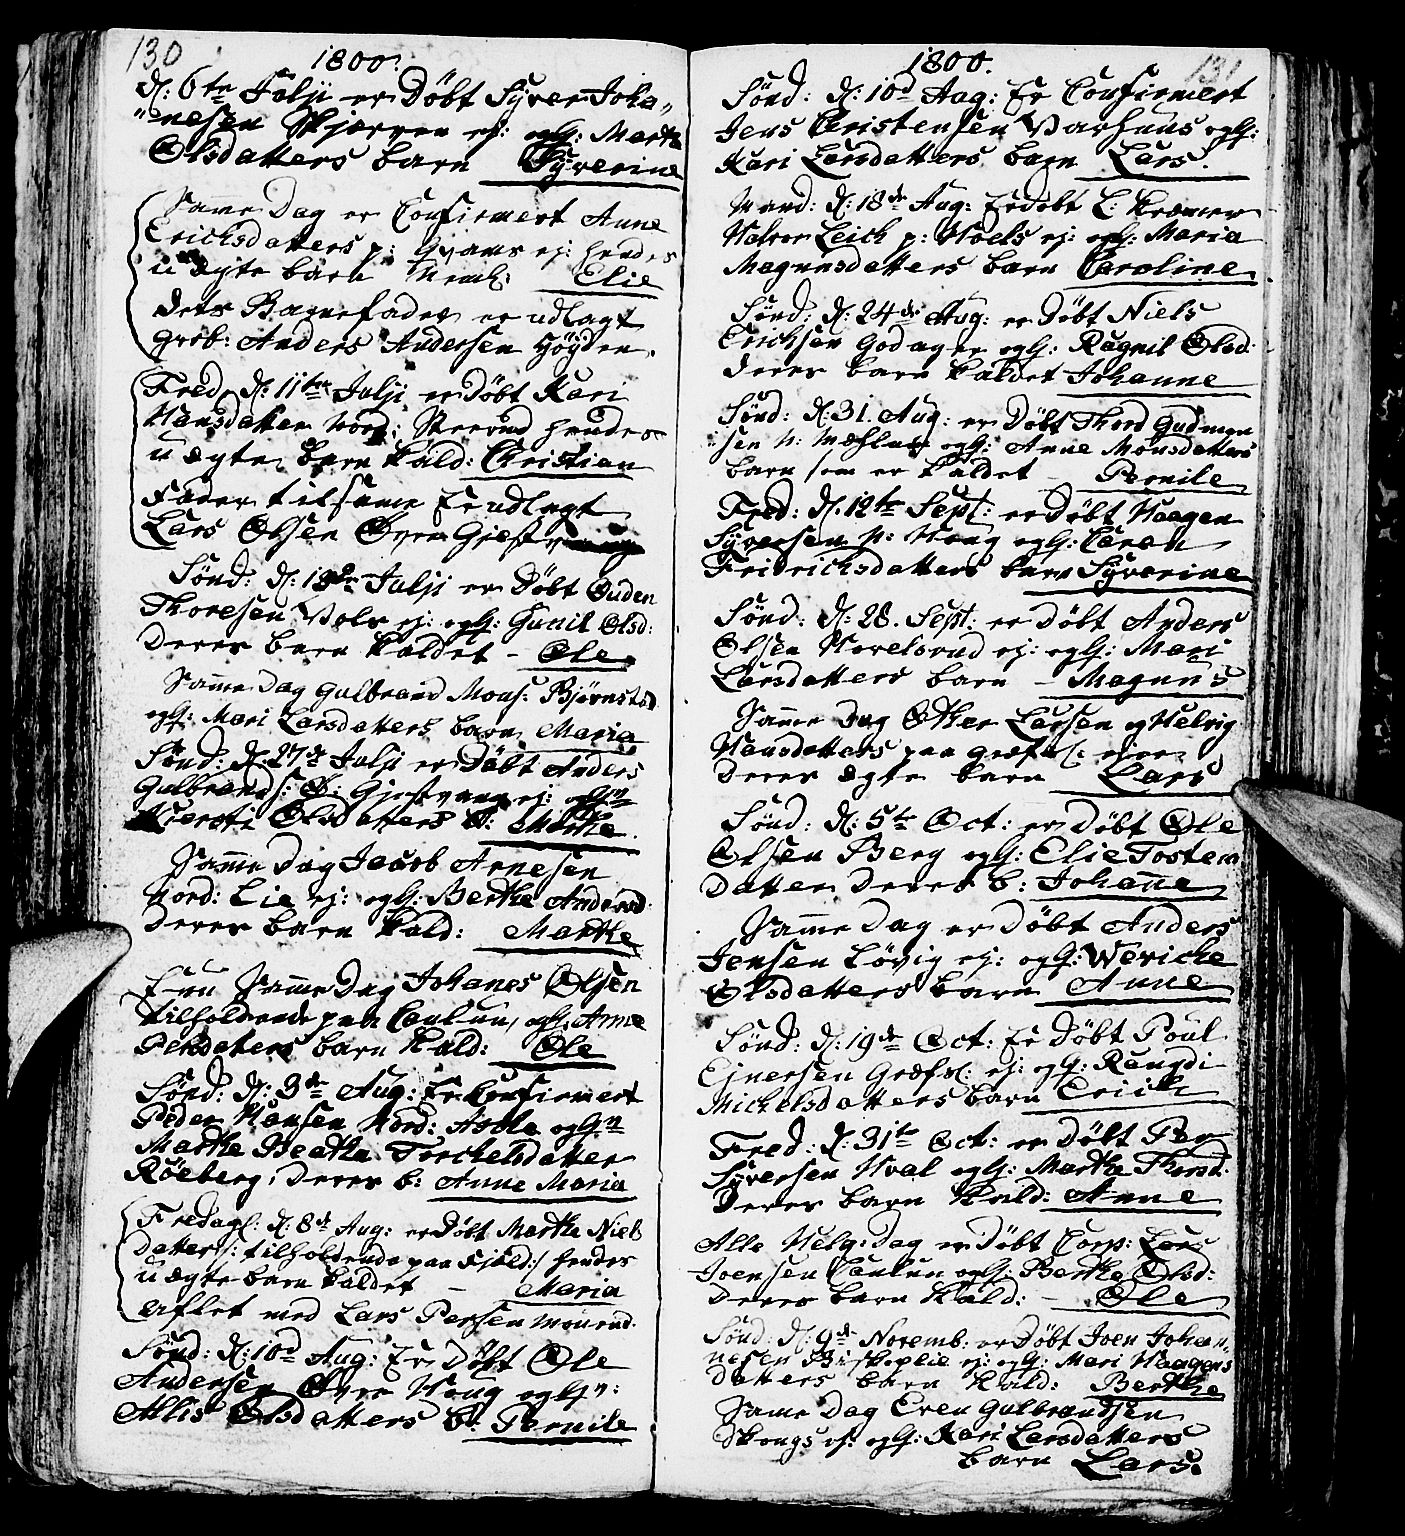 130
1800.
d: 6te Julji er Døbt Syver Joha-
-nesen Skjerven ej: ogH: Marthe
Olsdatters barn Syverine
Same Dag er Confirmert Anne
Erichsdatters p: Gvams ej: hendes
u ægte barn Neml: Elie
dets Barnefader er udlagt
Anders Andersen Høyden.
Fred d: 11te Julji er Døbt Kari
Hansdatter Nord: hendes
u ægte barn kald: Christian
Fader til same er udlagt
Lars Olsen Øvre
Sønd: d: 13de Julji er Døbt Ouden
Thoresen Vols ej: ogH: Gunil Olsd:
deres barn kaldet - Ole
Same Dag Gulbrand Mons: Bjørnstad
ogH: Mari Larsdatters barn Maria
Sønd: d: 27de Julji er Døbt Anders
Gulbrands: Ø: ej: ogHn
Kiersti Olsdatters b: Marthe.
Same Dag Jacob Arnesen
Nord: Lie ej: ogH: Berthe Andersd:
deres barn kald: Marthe
Enu Same Dag Johanes Olsen
tilholdende paa ogH: Anne
Persdaters barn kald: Ole
Sønd: d: 3de Aug: Er Confirmert
Peder Hansen Nord: ogHn
Marthe Beathe Torchelsdatter
Røeberg, deres b: Anne Maria
Fredag: d: 8de Aug: er Døbt Marthe Niels
datter /: tilholdende paa Fjeld :/ hendes
u ægte barn kaldet - Maria
aflet med Lars Persen
Sønd: d: 10d Aug: Er Døbt Ole
Andersen Øvre Houg ogHn:
Allis Olsdatters b: Pernile
131
1800.
Sønd: d: 10d Aug: Er Confirmert
Jens Christensen Varhuus ogH:
Kari Larsdatters barn Lars.
Mand: d: 18de Aug: Er Døbt
Halvor Leich p: Hoels ej: ogH: Maria
Magnusdatters barn Caroline
Sønd: d: 24de Aug: er Døbt Niels
Erichsen Godager ogH: Ragnil Olsd:
deres barn kaldet Johanne
Sønd: d: 31. Aug: er Døbt Thord Gudmun
-sen N: ogH: Anne Monsdatters
barn som er kaldet - Pernile
Fred: d: 12te Sept: er Døbt Haagen
Syversen N: Houg ogH: Caren
Fridrichsdatters barn Syverine
Sønd: d: 28. Sept: er Døbt Anders
Olsen Horelsrud ej: ogH: Mari
Larsdatters barn - Magnus
Same Dag Larsen og Helvig
Hansdatters paa
deres ægte barn Lars
Sønd: d: 5te Oct: er Døbt Ole
Olsen Berg ogH: Elie Tosten
Datter deres b: Johane
Same Dag er Døbt Anders
Jensen Løvig ej: ogH: Weriche
Olsdatters barn Anne
Sønd: d: 19de Oct: Er Døbt Poul
Ejnersen ej: ogH: Rangdi
Michelsdatters barn Erich
Fred: d: 31te Oct: er Døbt Per
Syversen Hval ogH: Marthe Thorsd:
deres barn kald: Anne
Alle Helg: Dag er Døbt Corp: Lars
Joensen ogH: Berthe Olsd:
deres barn kald: - Ole
Sønd: d: 9de Novemb: er Døbt Joen Johan-
nesen Biskoplie ej: ogH: Mari Haagens
datters barn kald: Berthe
Same Dag Even Gulbrandsen
Skougs ej: ogH: Kari Larsdatters
barn Lars.